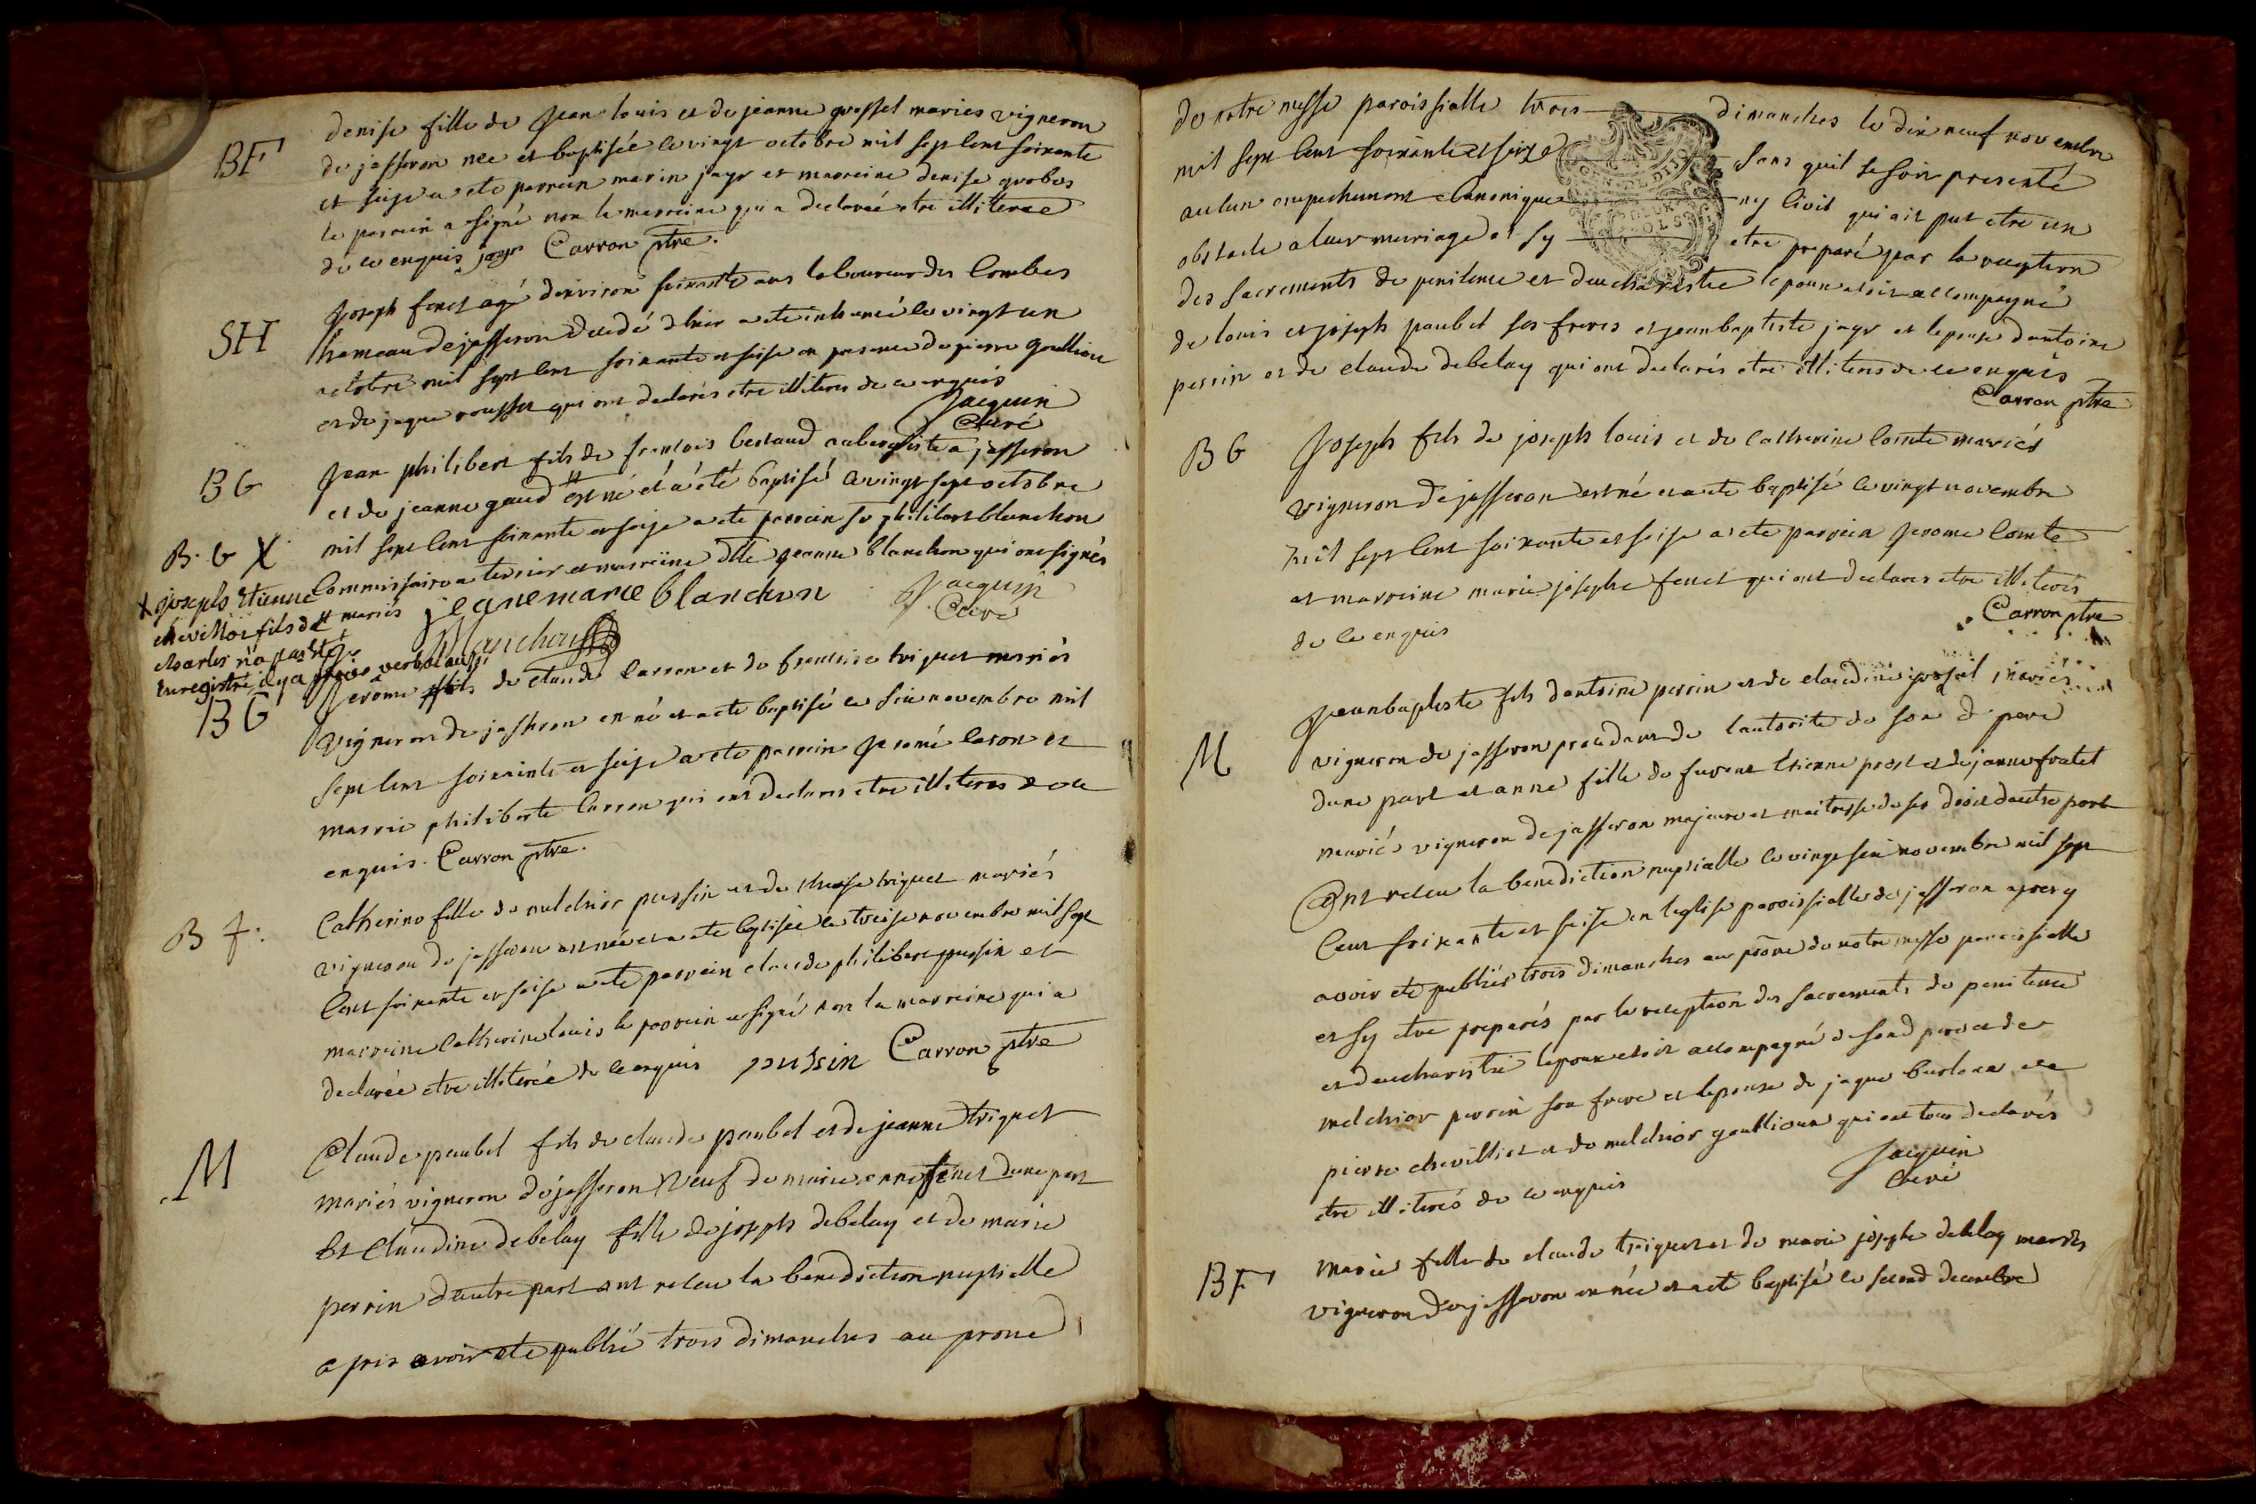 BF
denise fille de Jean louis et de jeanne grosset mariés vigneron
de jasseron née et baptisée le vingt octobre mil sept cent soixante
et seise a eté parrein marin jayr et marreine denise grobos
le parrein a signé non la marreine qui a declarée etre illiterée
de ce enquis jayr Carron ptre.
SH
Joseph feney agé denviron soixante ans laboureur des Combes
hameau de jasseron decedé d'hier a ete inhumé le vingt un
octobre mil sept cent soixante et seise en presence de pierre goullion
et de jaque rousset qui ont declarés etre illiterés de ce enquis
Jacquin
Curé
BG
Jean philibert fils de francois bertaud aubergiste a jasseron
et de jeanne gaud # est né et a été baptisé le vingt sept octobre
mil sept cent soixante et seise a ete parrein sr philibert blanchon
Commissaire a terrier et marreine dlle jeanne blanchon qui ont signés
jeanemarie blanchon
Blanchon
Jacquin
Curé
B. G X
X joseph Etienne
chevillot fils de # mariés
charles n'a pas été
enregistré il y a procés verbal au
BG
Jerôme fils de claude carron et de françoise triquet mariés
vigneron de jasseron est né et a ete baptisé le six novembre mil
sept cent soixante et seise a ete parrein Jeromé caron et
marrie philiberte carron qui ont declarés etre illiterés de ce
enquis. Carron ptre.
B f.
Catherine fille de melchior pussin et de therese triquet mariés
vigneron de jasseron est née et a ete baptisée le treise novembre mil sept
cent soixante et seise a ete parrein claude philibert pussin et
marreine Catherine louis le parrein a signé non la marreine qui a
declarée etre illiterée de ce enquis pussin Carron ptre
M
Claude paubel fils de claude paubel et de jeanne triquet
mariés vigneron de jasseron Veuf de marie anne fenet dune part
Et Claudine debelay fille de joseph debelay et de marie
perrin dautre part ont receu la benediction nuptialle
apres avoir ete publié trois dimanches au prone
de notre messe paroissialle trois dimanches le dix neuf novembre
mil sept cent soixante et seize sans quil se soit presenté
aucun empechement Canonique ny Civil qui ait put etre un
obstacle a leur mariage et sy etre preparé par la reception
des sacrements de penitence et deucharistie lepoux etoit accompagné
de louis et joseph paubel ses freres et jean baptiste jayr et lepouse dantoine
perrin et de claude debelay qui ont declarés etre illiterés de ce enquis
Carron ptre
BG
Joseph fils de joseph louis et de Catherine Comte mariés
vigneron de jasseron est né et a ete baptisé le vingt novembre
mil sept cent soixante et seise a ete parrein Jerome Comte
et marreine marie josephe fenet qui ont declarés etre illiterés
de ce enquis
Carron ptre
M
Jean baptiste fils dantoine perrin et de claudine mariés
vigneron de jasseron procedant de lautorité de son d. pere
dune part et anne fille de furent Etienne prost et de jeanne fratet
mariés vigneron de jasseron majeure et maitresse de ses droit dautre part
Ont receu la benediction nuptialle le vingt six novembre mil sept
cent soixante et seise en leglise paroissialle de jasseron apres y
avoir ete publiés trois dimanches au prône de notre messe paroissialle
et sy etre preparés par la reception des sacrements de penitence
et deucharistie lepoux etoit accompagné de sond pere et de
melchior perrin son frere et lepouse de jaque et de
pierre chevilliet et de melchior goullioux qui ont tous declarés
etre illiterés de ce enquis
Jacquin
Curé
BF
marie fille de claude triquet et de marie josephe debelay mariés
vigneron de jasseron est née et a ete baptisé le second decembre